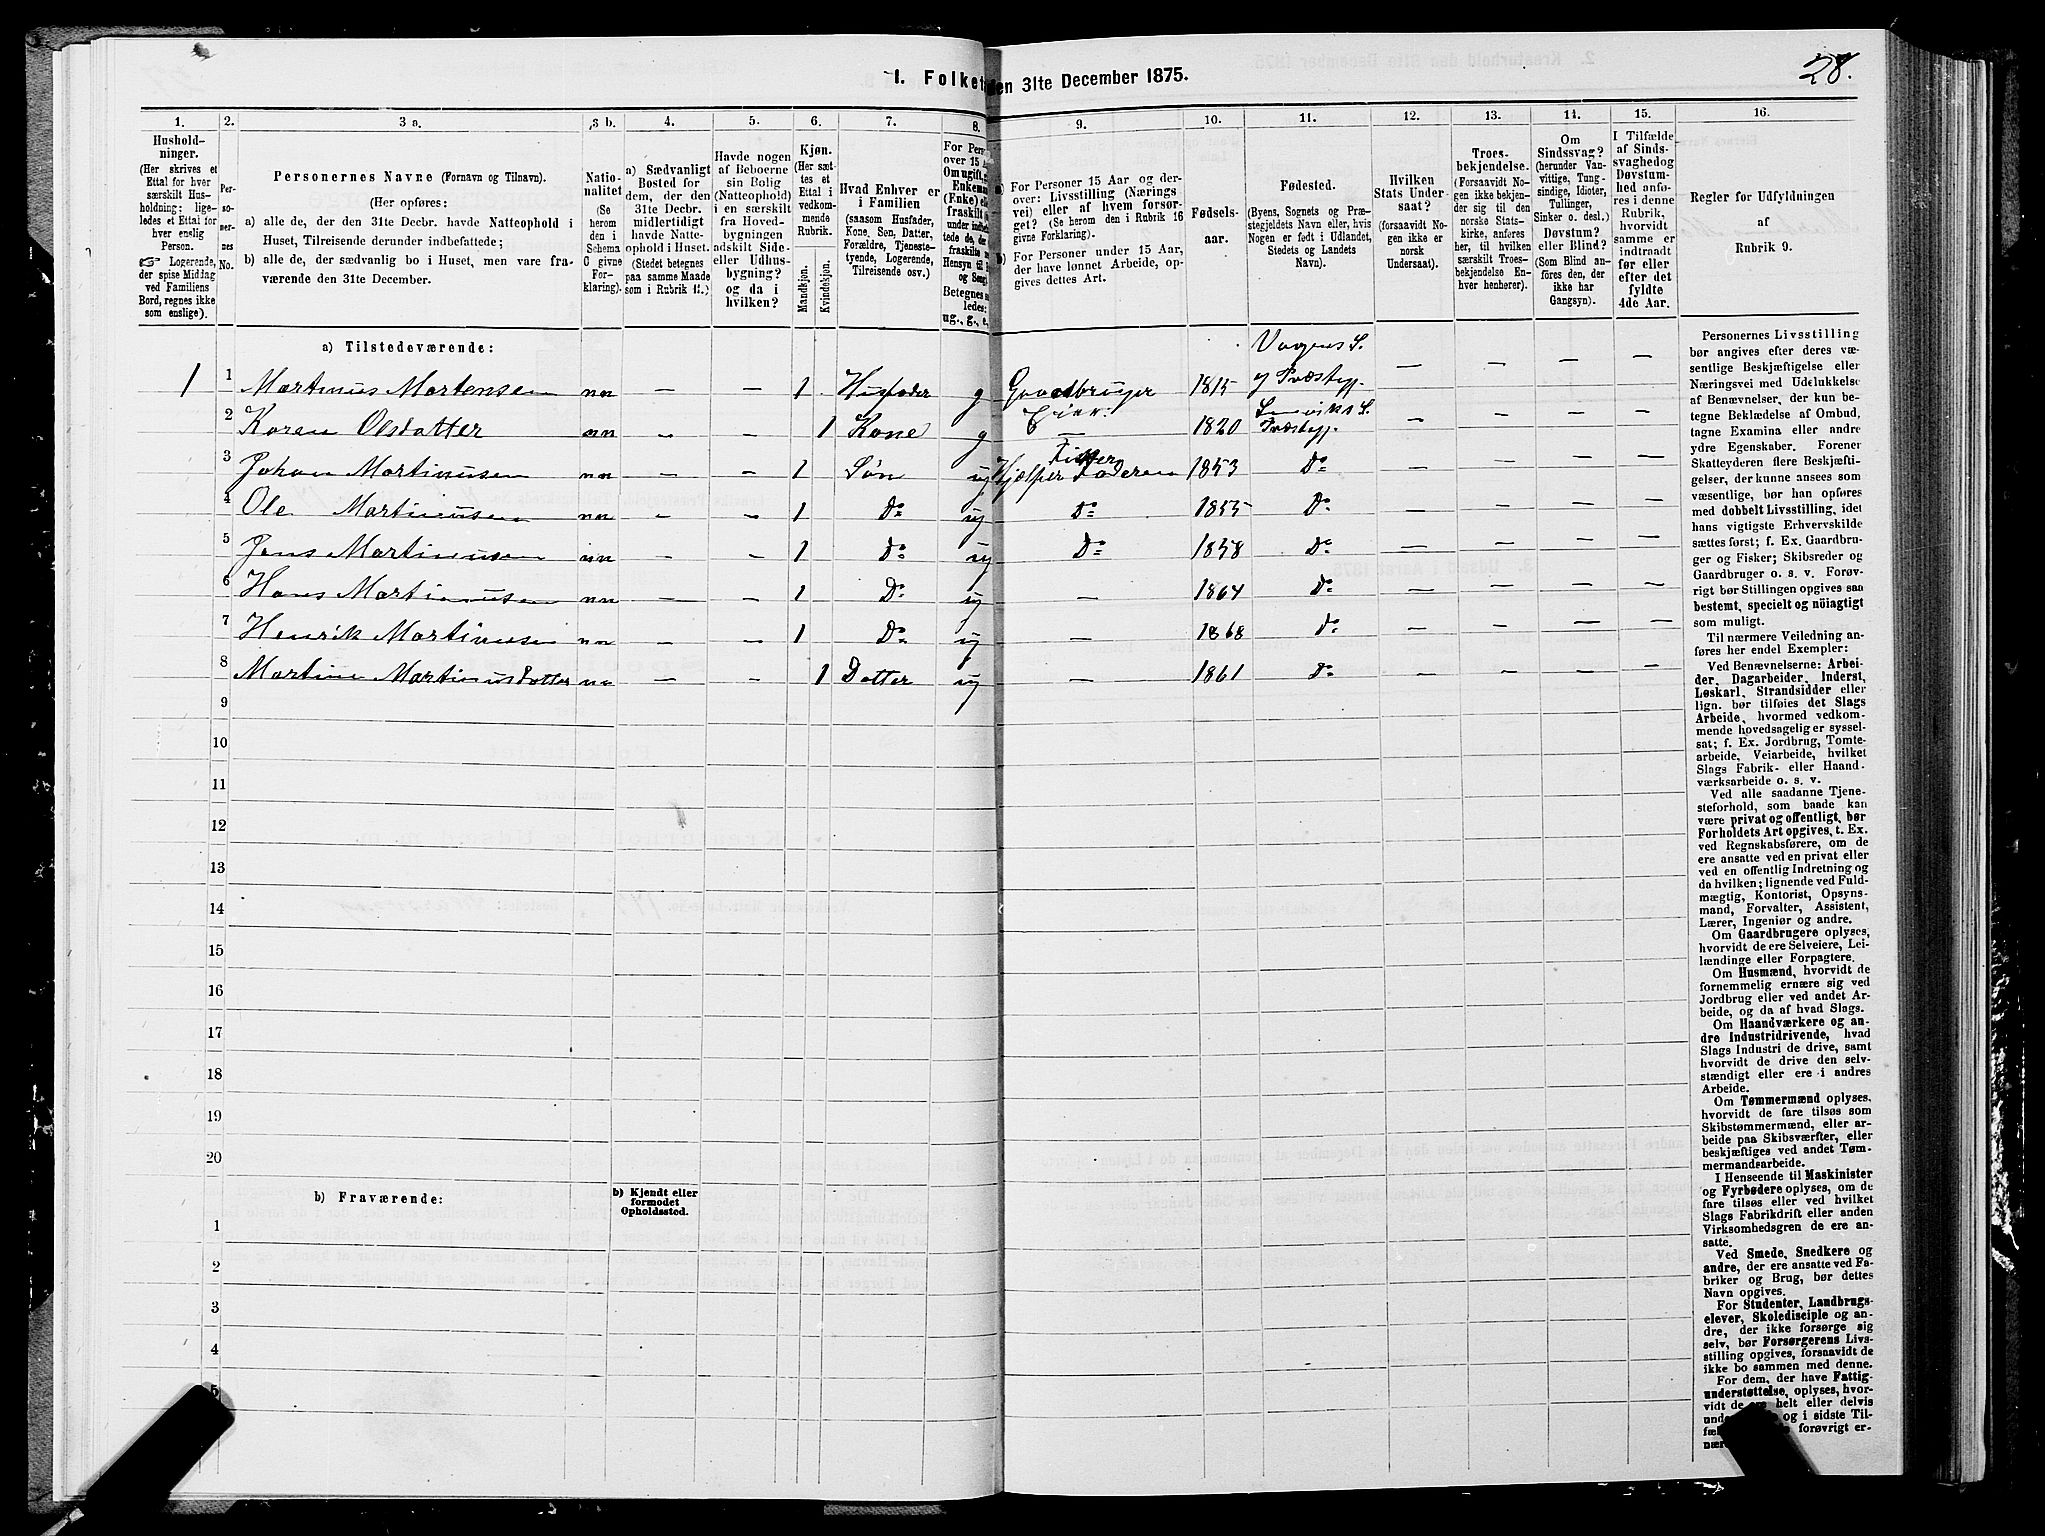 28.
1. Folket den 31te December 1875.
1. 2. 3 a. 3 b. 4. 5. 6. 7. 8. 9. 10. 11. 12. 13. 14. 15. 16.
Husholdninger.
(Her skrives et
Ettal for hver
særskilt Husholdning;
ligeledes et Ettal for
hver enslig
Person.
☞ Logerende,
der spise Middag
ved Familiens
Bord, regnes ikke
som enslige).
Personernes No.
Personernes Navne (Fornavn og Tilnavn).
(Her opføres:
a) alle de, der den 31te Decbr. havde Natteophold i
Huset, Tilreisende derunder indbefattede;
b) alle de, der sædvanlig bo i Huset, men vare fraværende
den 31te December.
Nationalitet
(Se
herom
den i
Schema
C givne
Forklaring).
a) Sædvanligt
Bosted for
dem, der den
31te Decbr.
midlertidigt
havde Natteophold
i Huset.
(Stedet betegnes
paa samme Maade
som i Rubrik 11.)
Havde nogen
af Beboerne
sin Bolig
(Natteophold)
i en særskilt
fra Hovedbygningen
adskilt Side-
eller Udhusbygning?
og da i
hvilken?
Kjøn.
(Her sættes
et
Ettal i
vedkommende
Rubrik.
Mandkjøn.
Kvindekjøn.
Hvad Enhver er
i Familien
(saasom Husfader,
Kone, Søn, Datter,
Forældre, Tjenestetyende,
Logerende,
Tilreisende osv.)
For Pers
over 15 Aa
Om ugift, g
Enkema
(Enke) elle
fraskilt
ledes:
ug., g., e.
a) For Personer 15 Aar og derover:
Livsstilling (Næringsvei)
eller af hvem forsørget.
(Se herom den i Rubrik 16
givne Forklaring).
b) For Personer under 15 Aar,
der have lønnet Arbeide, opgives
dettes Art.
Fødselsaar.
Fødested.
(Byens, Sognets og Præstegjeldets
Navn eller, hvis
Nogen er født i Udlandet,
Stedets og Landets
Navn).
Hvilken
Stats Undersaat?
(forsaavidt Nogen
ikke er
norsk
Undersaat).
Troesbekjendelse.
(Forsaavidt Nogen
ikke bekjender
sig til den
norske Statskirke,
anføres
her, til hvilken
særskilt Troesbekjendelse
Enhver
henhører).
Om
Sindssvag?
(herunder Vanvittige,
Tungsindige,
Idioter,
Tullinger,
Sinker o. desl.)
Døvstum?
eller Blind?
(Som Blind anføres
den, der
ikke har
Gangsyn).
I Tilfælde
af Sindssvaghed
og
Døvstumhed
anføres
i denne
Rubrik,
hvorvidt
samme er
indtraadt
før eller
efter det
fyldte
4de Aar.
Regler for Udfyldningen
af
Rubrik 9.
a) Tilstedeværende:
1 1 Martinus Martensen nn — — 1 Husfader g Gaardbruger Eier. 1815 — — — —
2 Karen Olsdatter nn — — 1 Kone g — 1820 Præstegj. — — — —
3 Johan Martinusen nn — — 1 Søn ug Hjelper Faderen Fisker 1853 Do — — — —
4 Ole Martinusen nn — — 1 Do ug Do 1855 Do — — — —
5 Jens Martinusen nn — — 1 Do ug Do 1858 Do — — — —
6 Hans Martinusen nn — — 1 Do ug — 1864 Do — — — —
7 Henrik Martinusen nn — — 1 Do ug — 1868 Do — — — —
8 Martine Martinusdatter nn — — 1 Datter ug — 1861 Do — — — —
9
10
11
12
13
14
15
16
17
18
19
20
b) Fraværende:
b) Kjendt eller
formodet
Opholdssted.
1
2
3
4
5
Personernes Livsstilling
bør angives efter deres væsentlige
Beskjæftigelse eller
Næringsvei med Udelukkelse
af Benævnelser, der kun betegne
Beklædelse af Ombud,
tagne Examina eller andre
ydre Egenskaber. Forener
Skatteyderen flere Beskjæftigelser,
der kunne ansees som
væsentlige, bør han opføres
med dobbelt Livsstilling, idet
hans vigtigste Erhvervskilde
sættes først; f. Ex. Gaardbruger
og Fisker; Skibsreder og
Gaardbruger o. s. v. Forøvrigt
bør Stillingen opgives saa
bestemt, specielt og nöiagtigt
som muligt.
Til nærmere Veiledning anføres
her endel Exempler:
Ved Benævnelserne: Arbeider,
Dagarbeider, Inderst,
Løskarl, Strandsidder eller
lign. bør tilføies det Slags
Arbeide, hvormed vedkommende
hovedsagelig er sysselsat;
f. Ex. Jordbrug, Tomtearbeide,
Veiarbeide, hvilket
Slags Fabrik- eller Haandværksarbeide
o. s. v.
Ved alle saadanne Tjenesteforhold,
som baade kan
være privat og offentligt, bør
Forholdets Art opgives, t. Ex.
ved Regnskabsførere, om de
ere ansatte ved en privat eller
ved en offentlig Indretning og
da hvilken; lignende ved Fuldmægtig,
Kontorist, Opsynsmand,
Forvalter, Assistent,
Lærer, Ingeniør og andre.
Om Gaardbrugere oplyses,
hvorvidt de ere Selveiere, Leilændinge
eller Forpagtere.
Om Husmænd, hvorvidt de
fornemmelig ernære sig ved
Jordbrug eller ved andet Arbeide,
og da af hvad Slags.
Om Haandværkere og andre
Industridrivende, hvad
Slags Industri de drive, samt
hvorvidt de drive den selvstændigt
eller ere i andres
Arbeide.
Om Tømmermænd oplyses,
hvorvidt de fare tilsøs som
Skibstømmermænd, eller arbeide
paa Skibsværfter, eller
beskjæftiges ved andet Tømmermandsarbeide.
I Henseende til Maskinister
og Fyrbødere oplyses, om de
fare tilsøs eller ved hvilket
Slags Fabrikdrift eller anden
Virksomhedsgren de ere ansatte.
Ved Smede, Snedkere og
andre, der ere ansatte ved Fabriker
og Brug, bør dettes
Navn opgives.
For Studenter, Landbrugselever,
Skoledisciple og andre,
der ikke forsørge sig
selv, bør Forsørgerens Livsstilling
opgives, forsaavidt de
ikke bo sammen med denne.
For dem, der have Fattigunderstøttelse,
oplyses, hvorvidt
de ere helt eller delvis
og i sidste Til-
forøvrigt er-